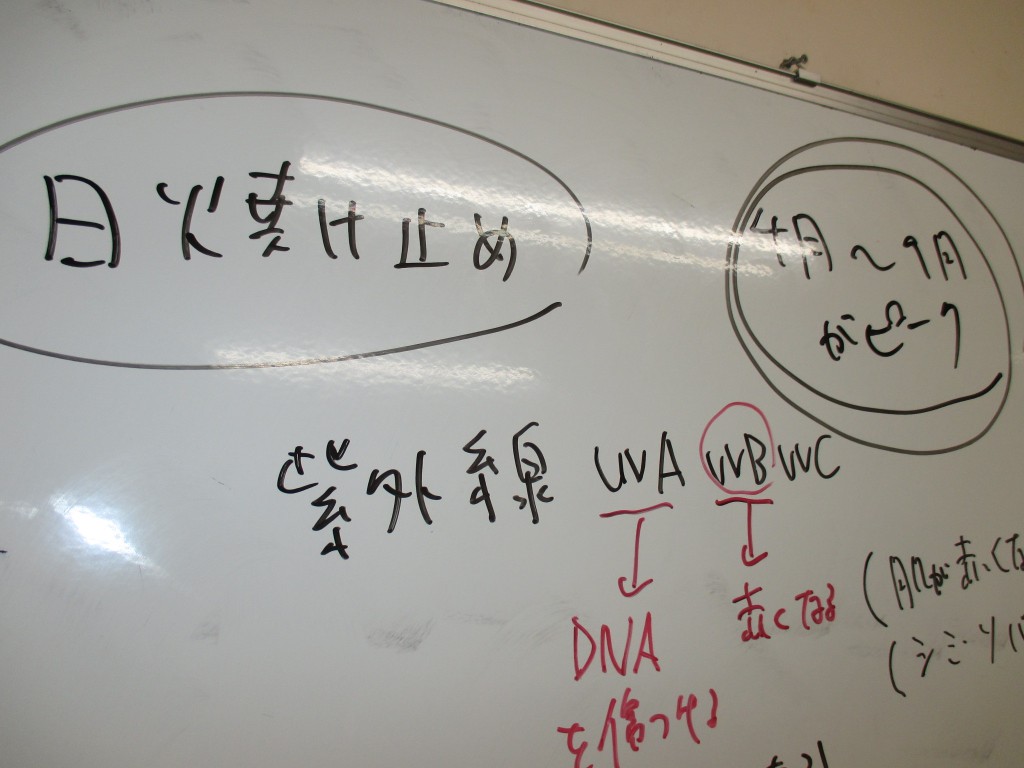 日焼け止め
4月〜9月
がピーク
紫外線 UVA UVB UVC
赤くなる
DNA
を傷つける
(肌が赤くな
(シミ・ソバ